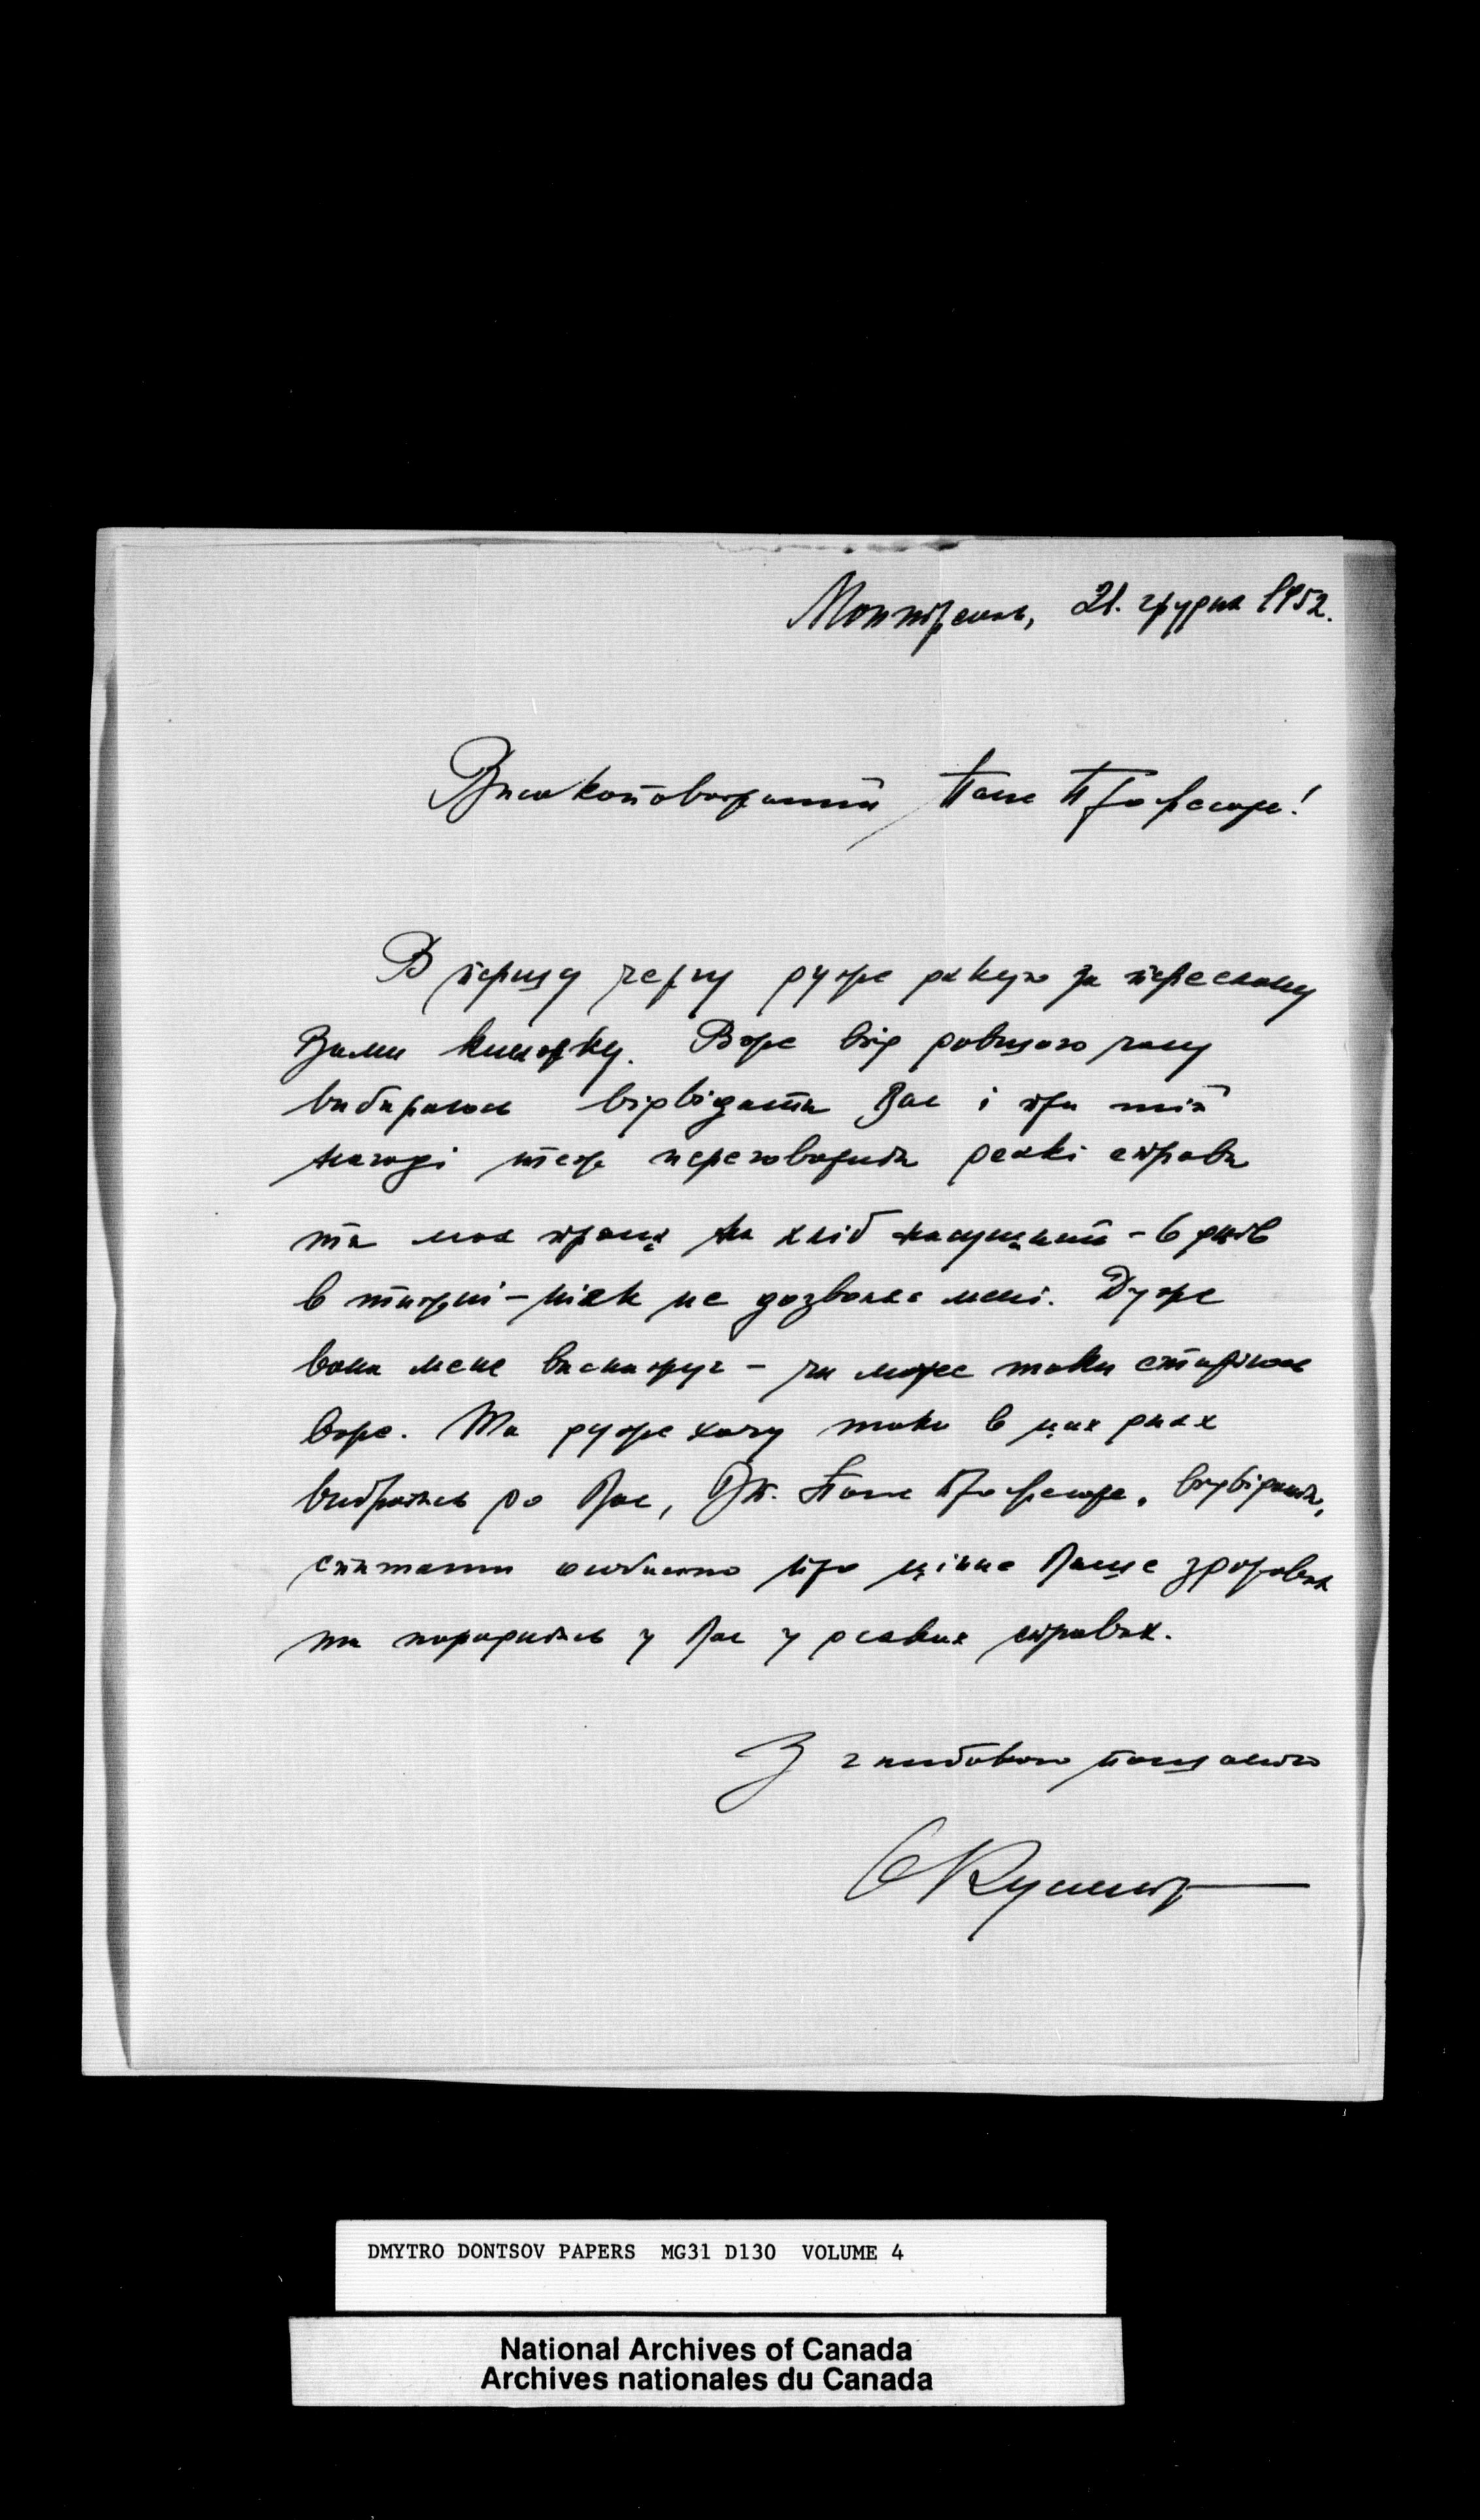 Монтреаль, 21. грудня 1952.
Високоповажаний Пане Професоре!
В першу чергу дуже дякую за переслану
Вами книжку. Вже від довшого часу
вибираюсь відвідати Вас і при тій
нагоді теж переговорити деякі справи
та моя праця на хліб насущний – 6 днів
в тижні – ніяк не дозволяє мені. Дуже
вона мене виснажує – чи може таки старіюсь
вже. Та дуже хочу таки в цих днях
вибратись до Вас, Дк. Пане Професоре, відвідати,
спитати особисто про цінне Ваше здоровля
та порадитись у Вас у деяких справах.
З глибокою пошаною
DMYTRO DONTSOV PAPERS MG31 D130 VOLUME 4
National Archives of Canada
Archives nationales du Canada